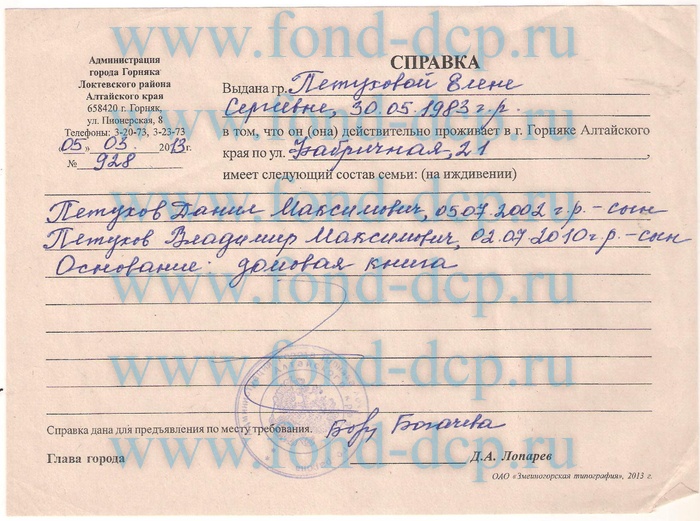 www.fond-dcp.ru
Администрация
города Горняка
Локтевского района
Алтайского края
658420 г. Горняк,
ул. Пионерская, 8
Телефоны: 3-20-73, 3-23-73
«05» 03 2013г.
№ 928
СПРАВКА
Выдана гр. Петуховой Елене
Сергевне, 30.05.1983 г.р.
в том, что он (она) действительно проживает в г. Горняке Алтайского
края по ул. Фабричная, 21,
имеет следующий состав семьи: (на иждивении)
www.fond-dcp.ru
Петухов Данил Максимович, 05.07.2002 г.р. - сын
Петухов Владимир Максимович, 02.07.2010 г.р. - сын
Основание: домовая книга
www.fond-dcp.ru
www.fond-dcp.ru
Справка дана для предъявления по месту требования. Богачева
www.fond-dcp.ru
Глава города Д.А. Лопарев
ОАО «Змеиногорская типография», 2013 г.